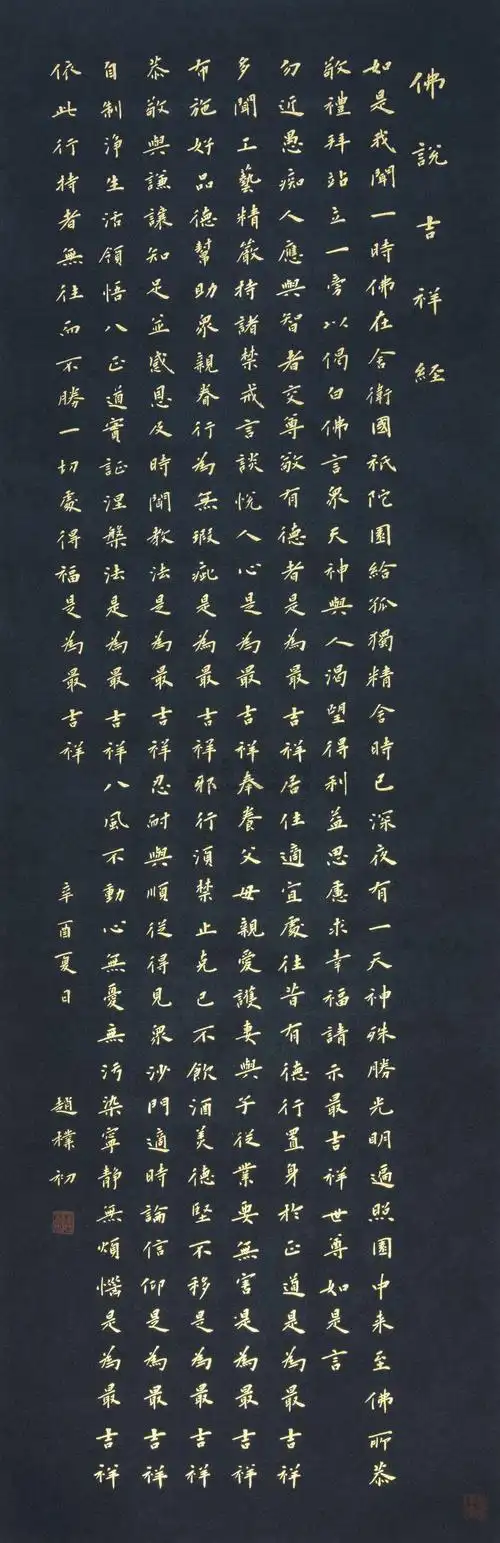 佛說吉祥經
如是我聞一時佛在舍衛國祇陀園給孤獨精舍時已深夜有一天神殊勝光明遍照園中来至佛所恭
敬禮拜站立一旁以偈白佛言眾天神與人渴望得利益思慮求幸福請示最吉祥世尊如是言
勿近愚痴人應與智者交尊敬有德者是為最吉祥居住適宜處往昔有德行置身於正道是為最吉祥
多聞工藝精嚴持諸禁戒言談悅人心是為最吉祥奉養父母親愛護妻與子從業要無害是為最吉祥
布施好品德幫助眾親眷行為無瑕疵是為最吉祥邪行須禁止克己不飲酒美德堅不移是為最吉祥
恭敬與謙讓知足並感恩及時聞教法是為最吉祥忍耐與順從得見眾沙門適時論信仰是為最吉祥
自制淨生活領悟八正道實証涅槃法是為最吉祥八風不動心無憂無污染寧靜無煩惱是為最吉祥
依此行持者無往而不勝一切處得福是為最吉祥
辛酉夏日
趙樸初